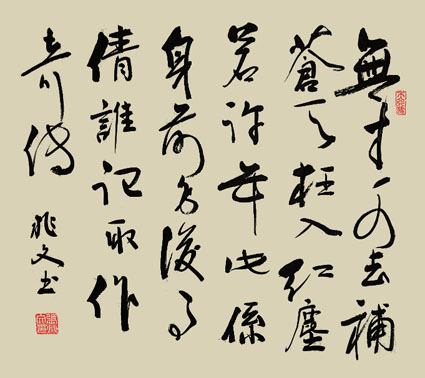 無才可去補
蒼天枉入紅塵
若許年此係
身前身後事
倩誰記取作
奇傳
文书